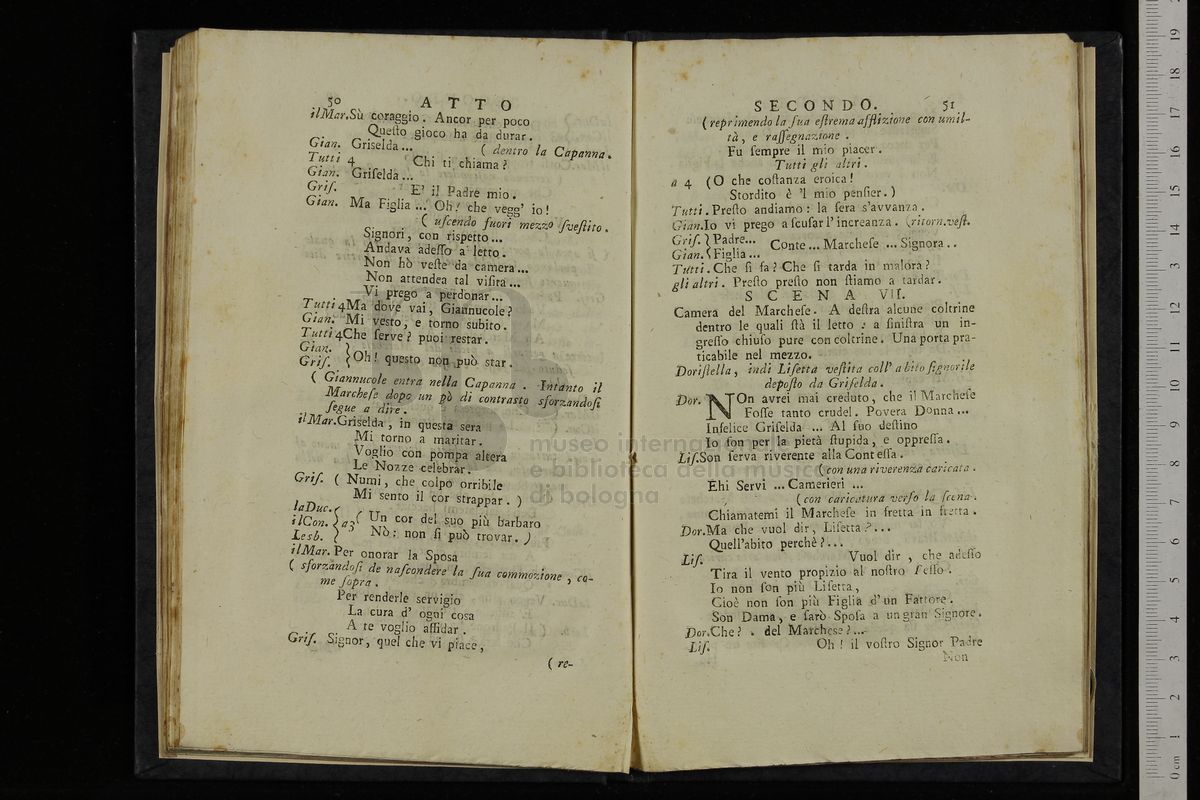 50 ATTO
il Mar. Sù coraggio. Ancor per poco
Queſto gioco ha da durar.
Gian. Griſelda... ( dentro la Capanna.
Tutti 4 Chi ti chiama?
Gian. Griſelda...
Griſ. E' il Padre mio.
Gian. Ma Figlia ... Oh! che vegg' io!
( uſcendo fuori mezzo ſveſtito.
Signori, con riſpetto...
Andava adeſſo a letto.
Non hò veſte da camera...
Non attendea tal viſita...
Vi prego a perdonar...
Tutti 4 Ma dove vai, Giannucole?
Gian. Mi vesto, e torno subito.
Tutti 4 Che ſerve? puoi reſtar.
Gian.
Griſ. } Oh! questo non può star.
( Giannucole entra nella Capanna. Intanto il
Marcheſe dopo un pò di contrasto sforzandoſi
ſegue a dire.
il Mar. Griselda, in questa sera
Mi torno a maritar.
Voglio con pompa altera
Le Nozze celebrar.
Griſ. ( Numi, che colpo orribile
Mi sento il cor strappar. )
la Duc.
il Con. } a 3 ( Un cor del suo più barbaro
Lesb. Nò: non ſi può trovar. )
il Mar. Per onorar la Sposa
( sforzandoſi de naſcondere la ſua commozione, co-
me ſopra.
Per renderle servigio
La cura d' ogni cosa
A te voglio affidar.
Griſ. Signor, quel che vi piace,
( re-
SECONDO. 51
( reprimendo la ſua eſtrema afflizione con umil-
tà, e raſſegnazione.
Fu ſempre il mio piacer.
Tutti gli altri.
a 4 (O che coſtanza eroica!
Stordito è 'l mio penſier.)
Tutti. Preſto andiamo: la ſera s'avvanza.
Gian. Io vi prego a ſcuſar l'increanza. (ritorn. veſt.
Griſ. } Padre... Conte... Marcheſe ... Signora..
Gian. { Figlia...
Tutti. Che ſi fa? Che ſi tarda in malora?
gli altri. Preſto preſto non ſtiamo a tardar.
SCENA VII.
Camera del Marcheſe. A deſtra alcune coltrine
dentro le quali ſtà il letto: a ſiniſtra un in-
greſſo chiuſo pure con coltrine. Una porta pra-
ticabile nel mezzo.
Doriſtella, indi Liſetta veſtita coll' abito ſignorile
depoſto da Griſelda.
Dor. NOn avrei mai creduto, che il Marcheſe
Foſſe tanto crudel. Povera Donna...
Infelice Griſelda ... Al ſuo deſtino
Io ſon per la pietà ſtupida, e oppreſſa.
Liſ. Son ſerva riverente alla Conteſſa.
( con una riverenza caricata.
Ehi Servi ... Camerieri ...
( con caricatura verſo la ſcena.
Chiamatemi il Marcheſe in fretta in fretta.
Dor. Ma che vuol dir, Liſetta?...
Quell'abito perchè?...
Liſ. Vuol dir, che adeſſo
Tira il vento propizio al noſtro ſeſſo.
Io non ſon più Liſetta,
Cioè non ſon più Figlia d'un Fattore.
Son Dama, e ſarò Spoſa a un gran Signore.
Dor. Che? . del Marchese?...
Liſ. Oh! il voſtro Signor Padre
Non
museo internazionale
e biblioteca della musica
di bologna
0 cm 1 2 3 4 5 6 7 8 9 10 11 12 13 14 15 16 17 18 19